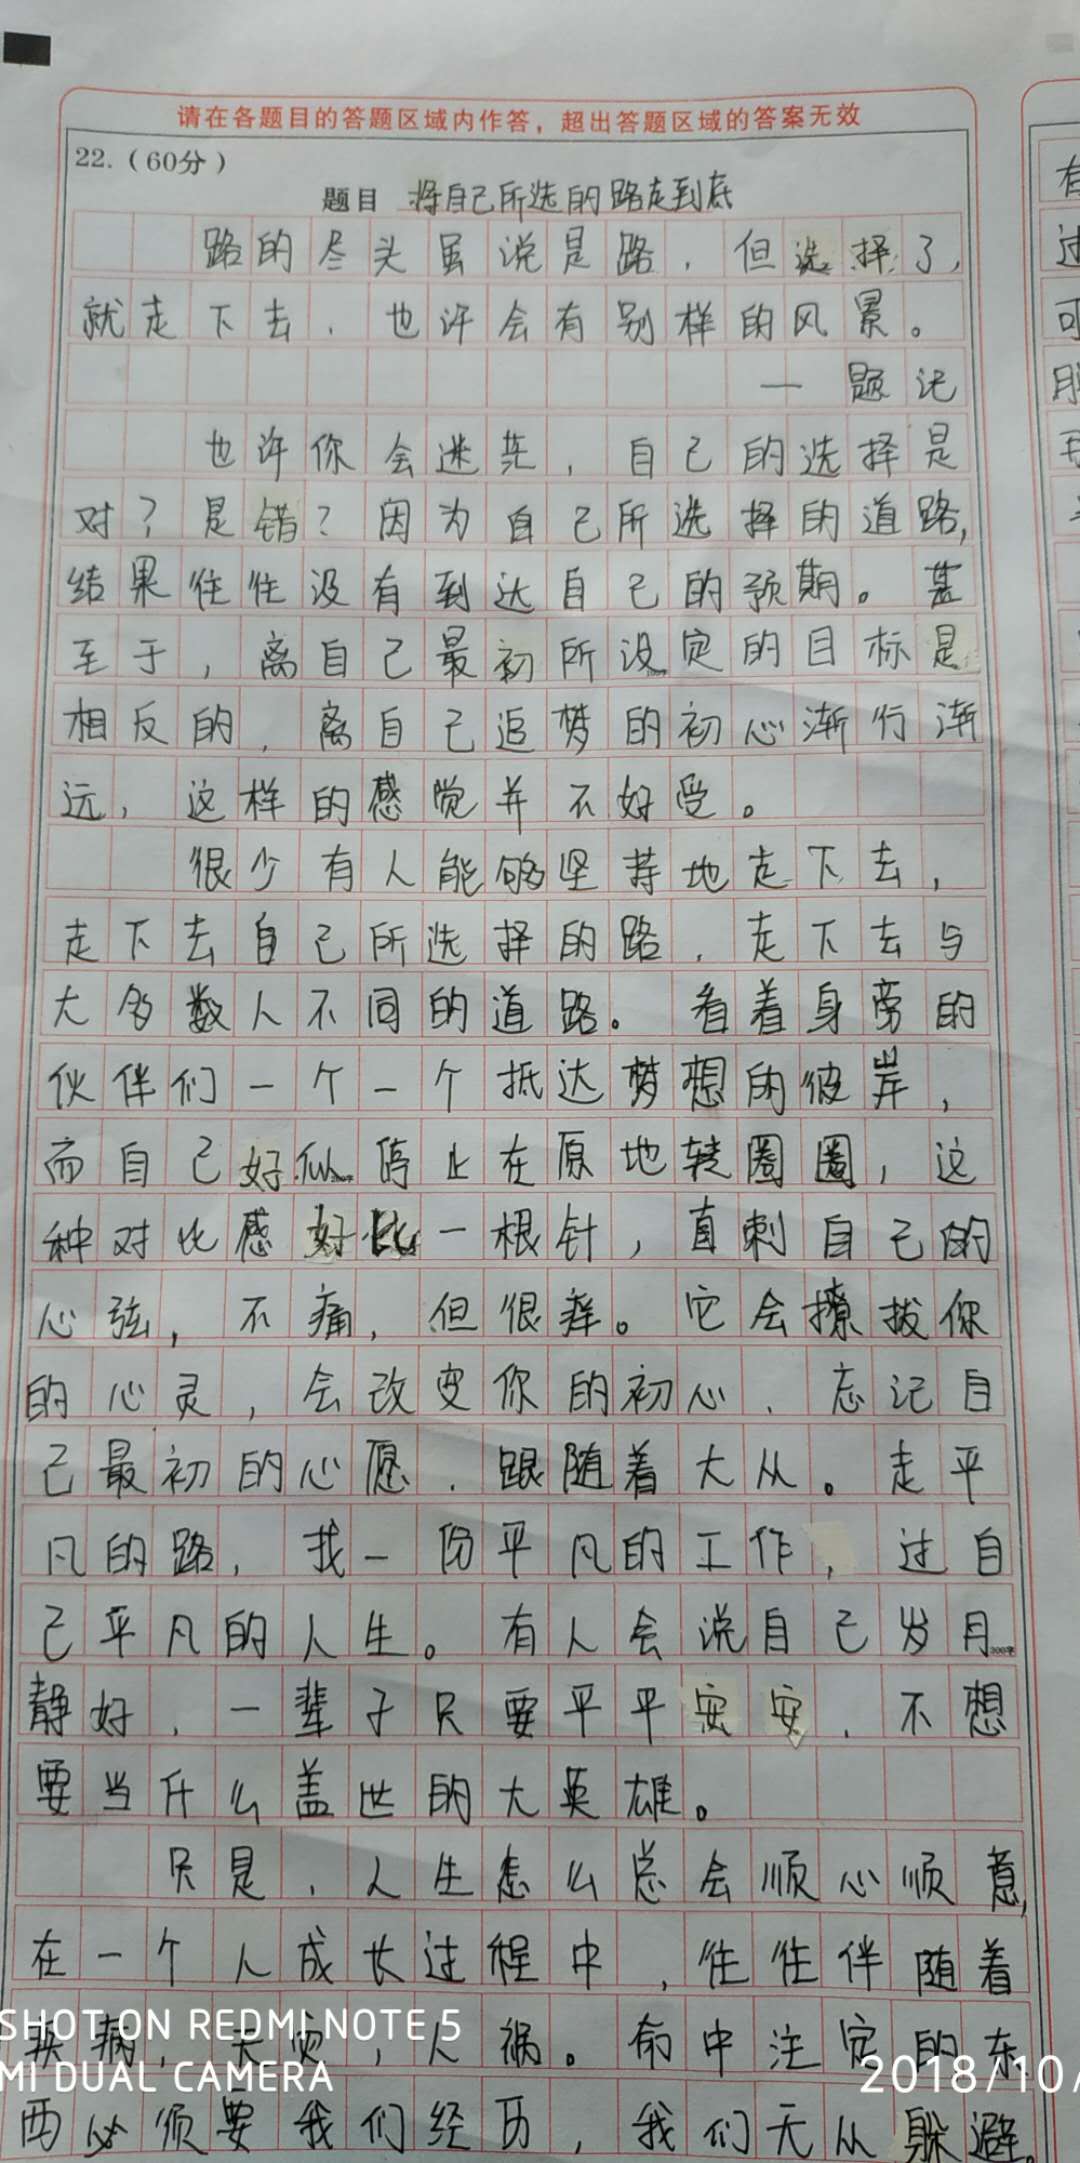 请在各题目的答题区域内作答，超出答题区域的答案无效
22.（60分）
题目 将自己所选的路走到底
路的尽头虽说是路，但选择了，
就走下去，也许会有别样的风景。
——题记
也许你会迷茫，自己的选择是
对？是错？因为自己所选择的道路，
结果往往没有到达自己的预期。甚
至于，离自己最初所设定的目标是
相反的，离自己追梦的初心渐行渐
远，这样的感觉并不好受。
很少有人能够坚持地走下去，
走下去自己所选择的路，走下去与
大多数人不同的道路。看着身旁的
伙伴们一个一个抵达梦想的彼岸，
而自己好似停止在原地转圈圈，这
种对比感好比一根针，直刺自己的
心弦，不痛，但很痒。它会撩拨你
的心灵，会改变你的初心，忘记自
己最初的心愿，跟随着大从。走平
凡的路，找一份平凡的工作，过自
己平凡的人生。有人会说自己岁月
静好，一辈子只要平平安安，不想
要当什么盖世的大英雄。
只是，人生怎么总会顺心顺意，
在一个人成长过程中，往往伴随着
疾病，天灾，人祸。命中注定的东
西必须要我们经历，我们无从躲避。
SHOT ON REDMI NOTE 5
MI DUAL CAMERA
2018/10/
有
过
可